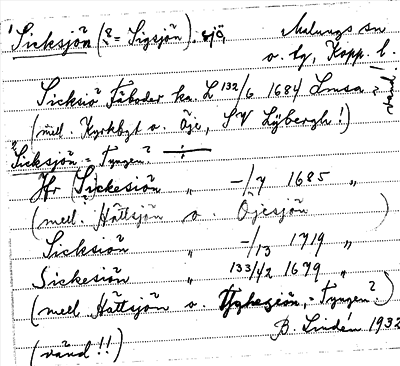 ¹Sicksjön (? = Sigsjön). sjö Malungs sn
o. tg, Kopp. l.
Sicksiö Fäboder ka. L 132/6 1684 Lmsa
(mell. Kyrkbyt o. Öje, SV Lybergh!)
²Sicksjön = Tyngen?
Jfr (Sickesiön " -/7 1685 "
(mell. Hättsjön o. Öjesjön )
Sicksiön " -/13 1719 "
Sickesiön " 133/42 1679 "
(mell Hättsjön o. = Tyngen?)
B. Lindén 1932
(vänd!!)